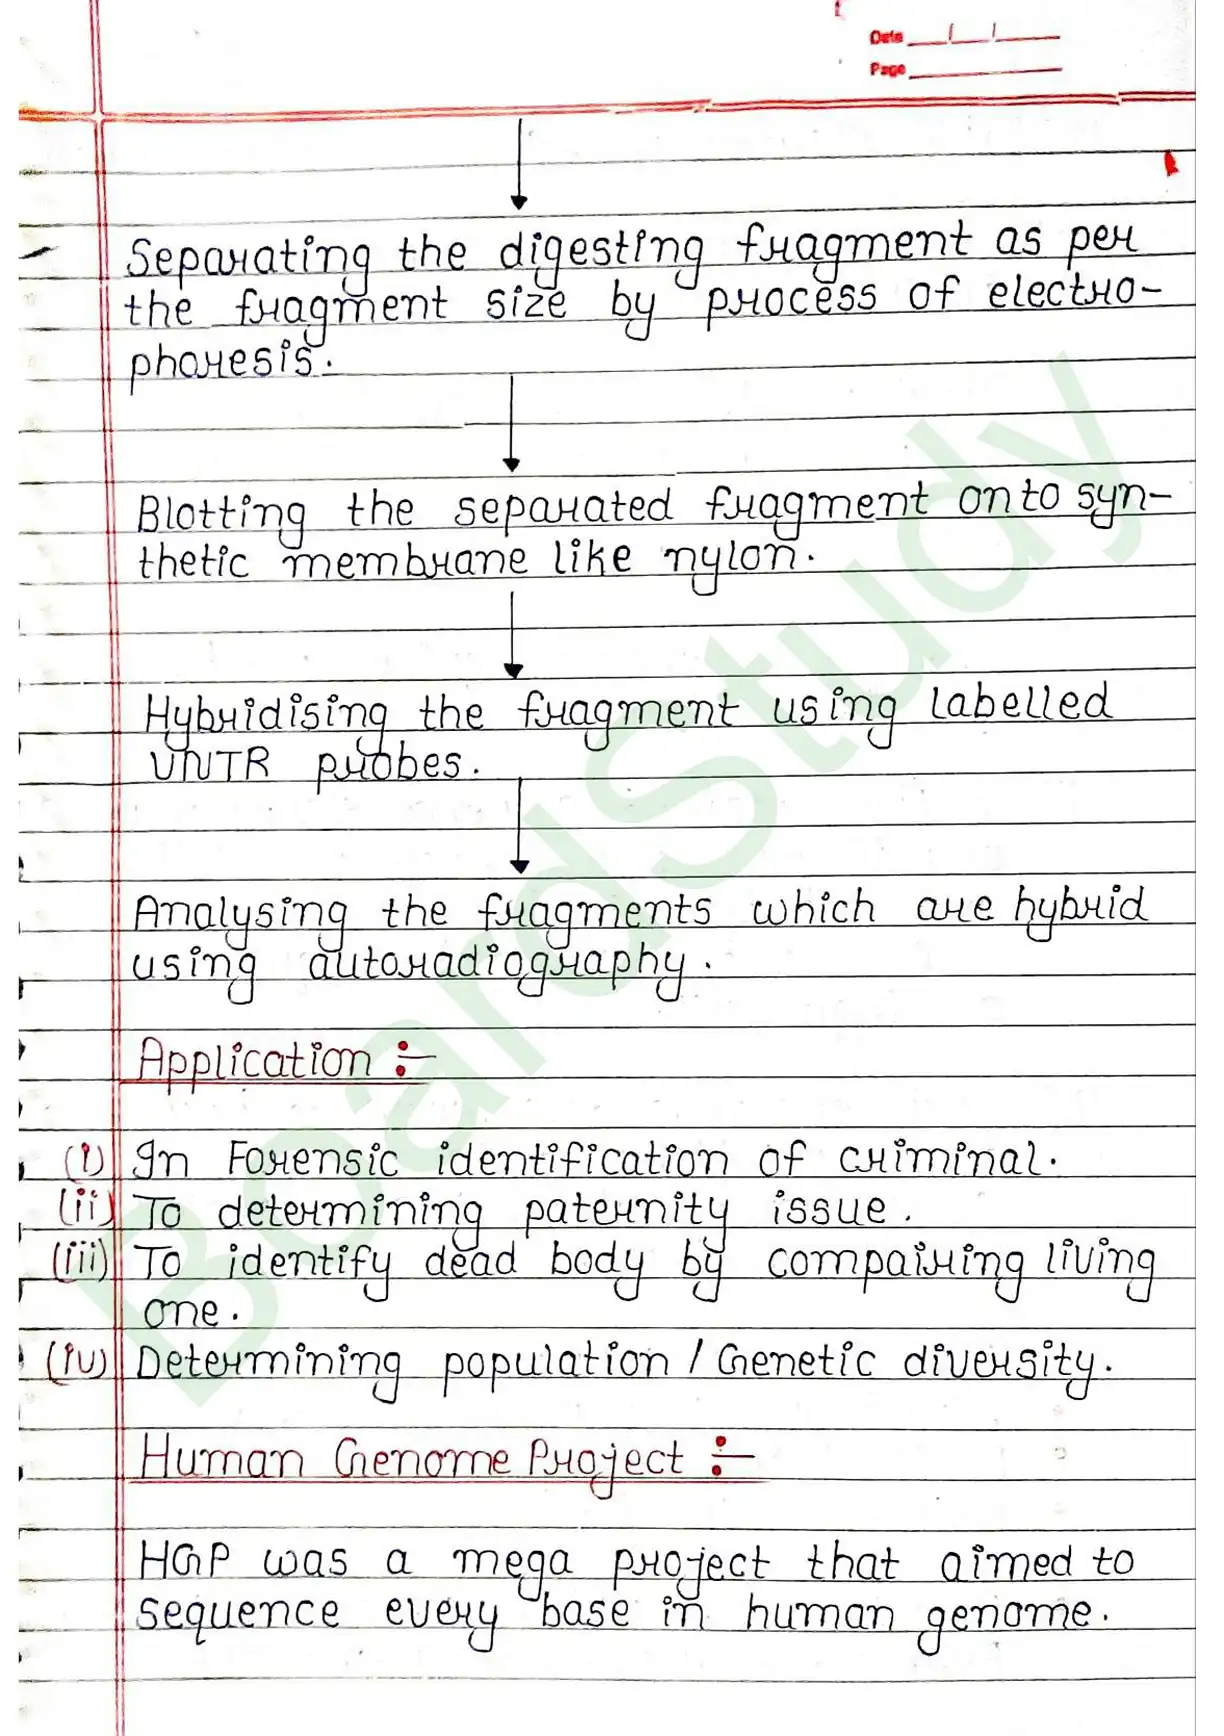 Date
Page
Separating the digesting fragment as per
the fragment size by process of electro-
phoresis.
Blotting the separated fragment onto syn-
thetic membrane like nylon.
Hybridising the fragment using labelled
VNTR probes.
Analysing the fragments which are hybrid
using autoradiography.
Application :-
(i) In Forensic identification of criminal.
(ii) To determining paternity issue.
(iii) To identify dead body by compairing living
one.
(iv) Determining population / Genetic diversity.
Human Genome Project :-
HGP was a mega project that aimed to
sequence every base in human genome.
BoardStudy